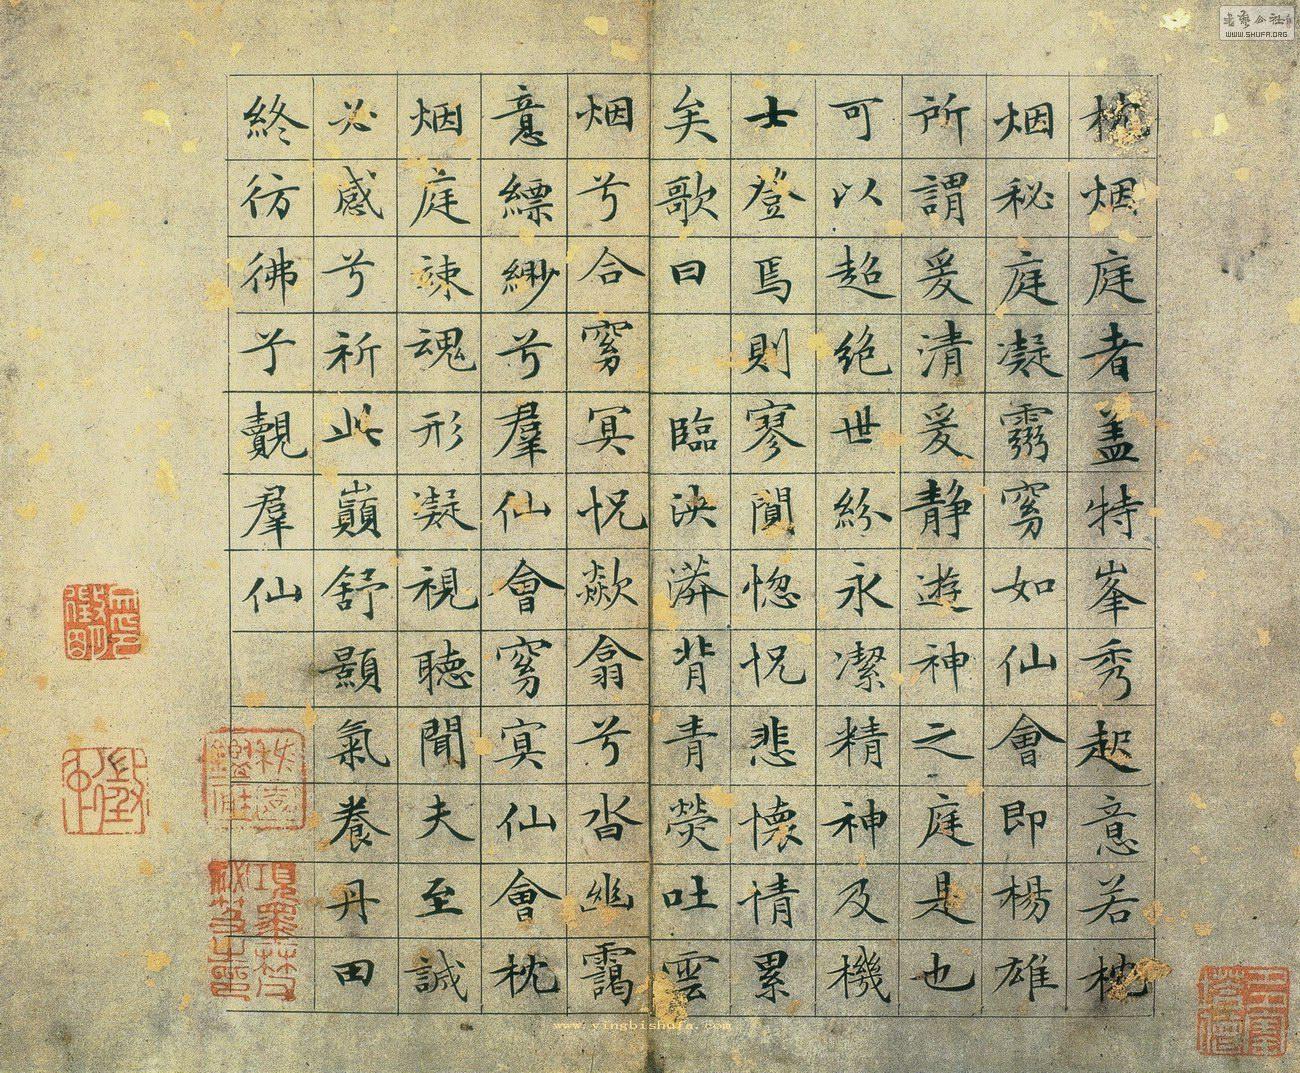 枕烟庭者盖特峯秀起意若枕
烟秘庭凝霛窈如仙會即楊雄
所謂爰清爰静遊神之庭是也
可以超絶世紛永潔精神及機
士登焉則寥閴惚怳悲懷情累
矣歌曰 臨泱漭背青熒吐雲
烟兮合窈冥怳欻翕兮沓幽靄
意縹緲兮羣仙會窈冥仙會枕
烟庭竦魂形凝視聽聞夫至誠
必感兮祈此巔舒顥氣養丹田
終彷彿兮覿羣仙
WWW.SHUFA.ORG
www.yingbishufa.com